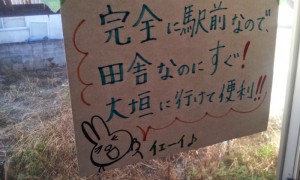 完全に駅前なので、
田舎なのにすぐ!
大垣に行けて便利!!
イエーイ♪